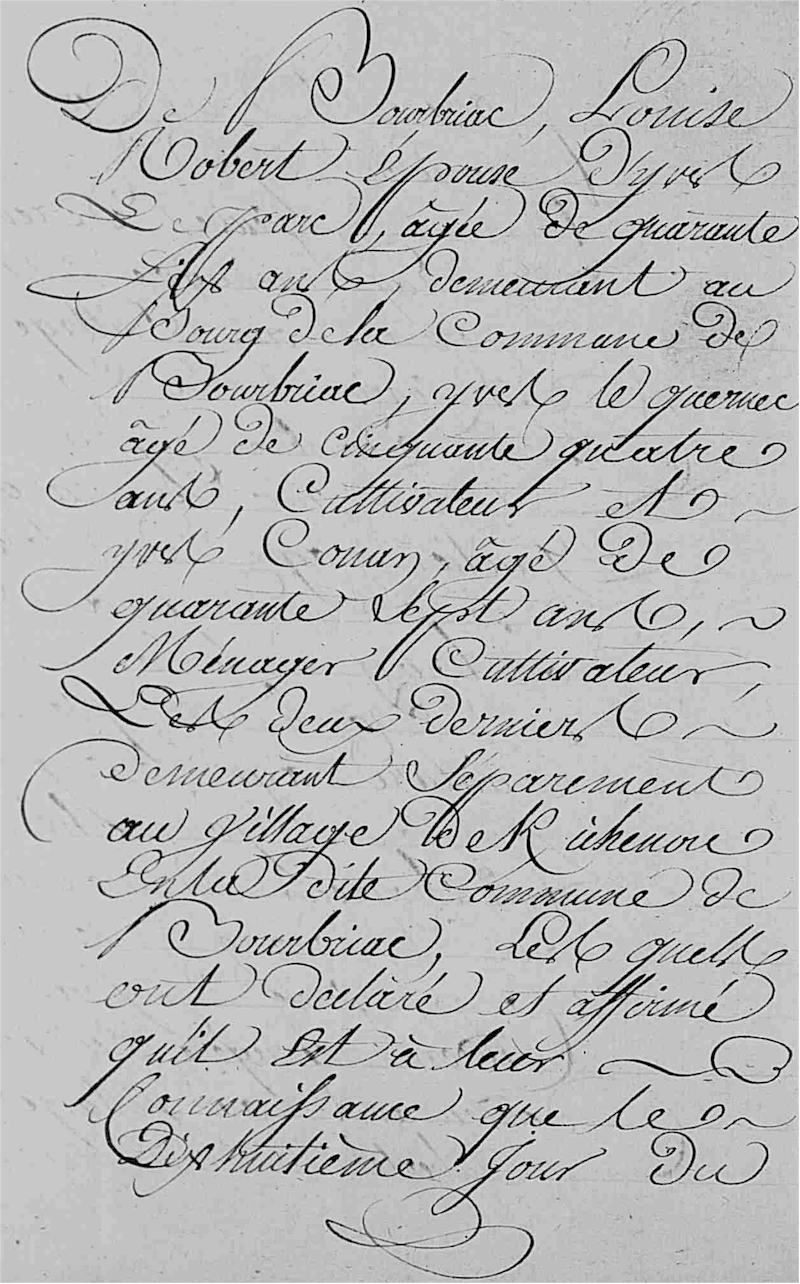 De Bourbriac, Louise
Robert Épouse d'yves
Le parc, âgée de quarante
Six ans, demeurant au
Bourg de la Commune de
Bourbriac, yves le quernec
âgé de Cinquante quatre
ans, Cultivateur et
yves Conan, âgé de
quarante Sept ans,
Ménager Cultivateur,
Les deux derniers
demeurant Séparement
au Village de
En la dite Commune de
Bourbriac, Les quels
ont déclaré et affirmé
qu'il Est à leur
Connaissance que le
Dix huitième Jour Du